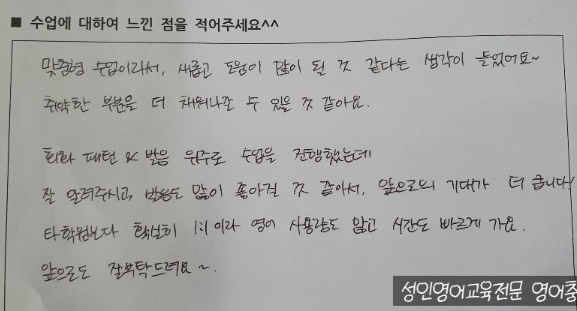 ■ 수업에 대하여 느낀 점을 적어주세요^^
맞춤형 수업이라서, 새롭고 도움이 많이 될 것 같다는 생각이 들었어요~
취약한 부분을 더 채워나갈 수 있을 것 같아요.
회화 패턴 & 발음 위주로 수업을 진행했는데
잘 알려주시고, 발음도 많이 좋아질 것 같아서, 앞으로의 기대가 더 큽니다!
타학원보다 확실히 1:1이라 영어 사용량도 많고 시간도 빠르게 가요.
앞으로도 잘부탁드려요~.
성인영어교육전문 영어중